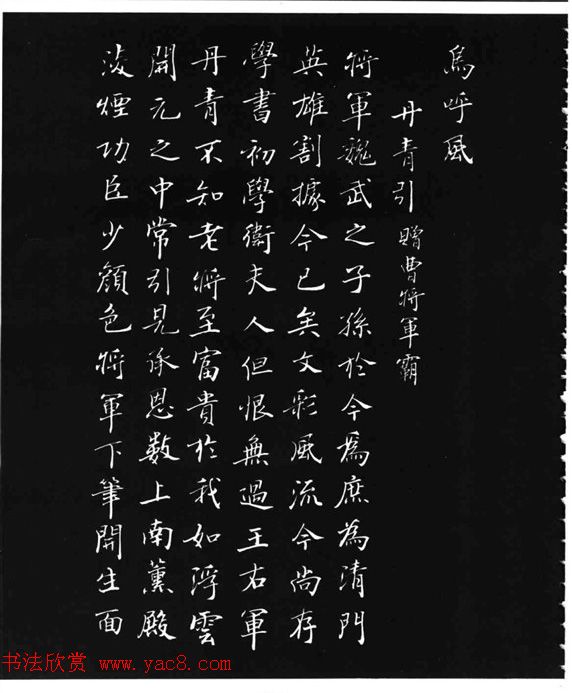 烏呼風
丹青引贈曹將軍霸
將軍魏武之子孫於今爲庶為清門
英雄割據今已矣文彩風流今尚存
學書初學衛夫人但恨無過王右軍
丹青不知老將至富貴於我如浮雲
開元之中常引見承恩數上南薰殿
淩煙功臣少顏色將軍下筆開生面
书法欣赏 www.yac8.com